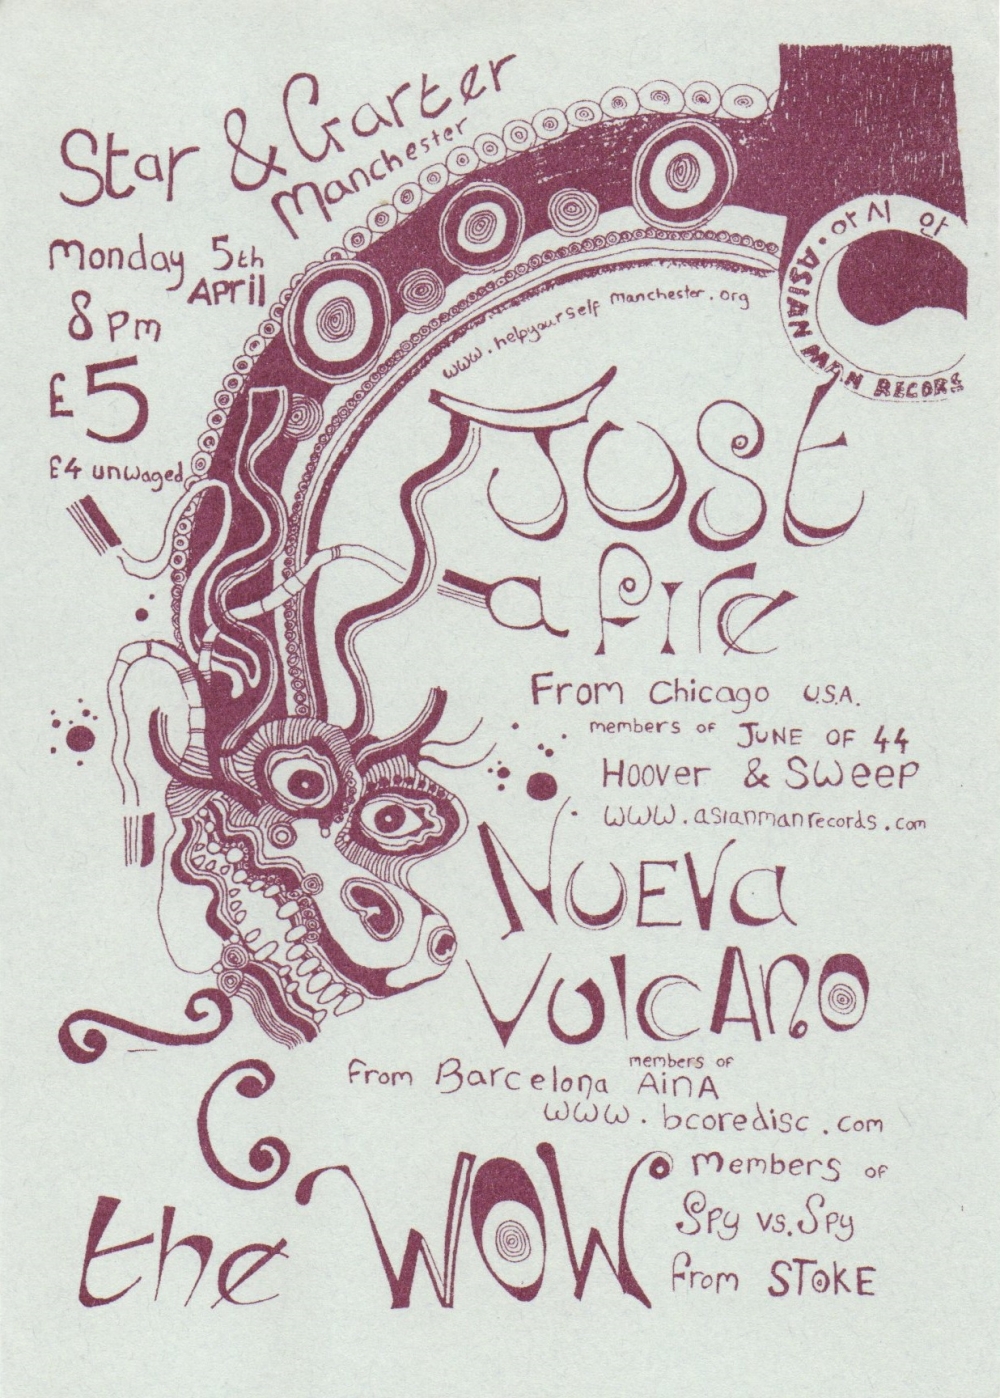 Star & Garter
Manchester
Monday 5th
April
8 pm
£5
£4 unwaged
www.helpyourself manchester.org
아시안 • ASIAN MAN RECORS
Just
a fire
From Chicago U.S.A.
members of JUNE OF 44
Hoover & Sweep
www.asianmanrecords.com
NUEVa
VulcANO
From Barcelona members of
AinA
www.bcoredisc.com
the WOW
members of
Spy vs. Spy
from STOKE